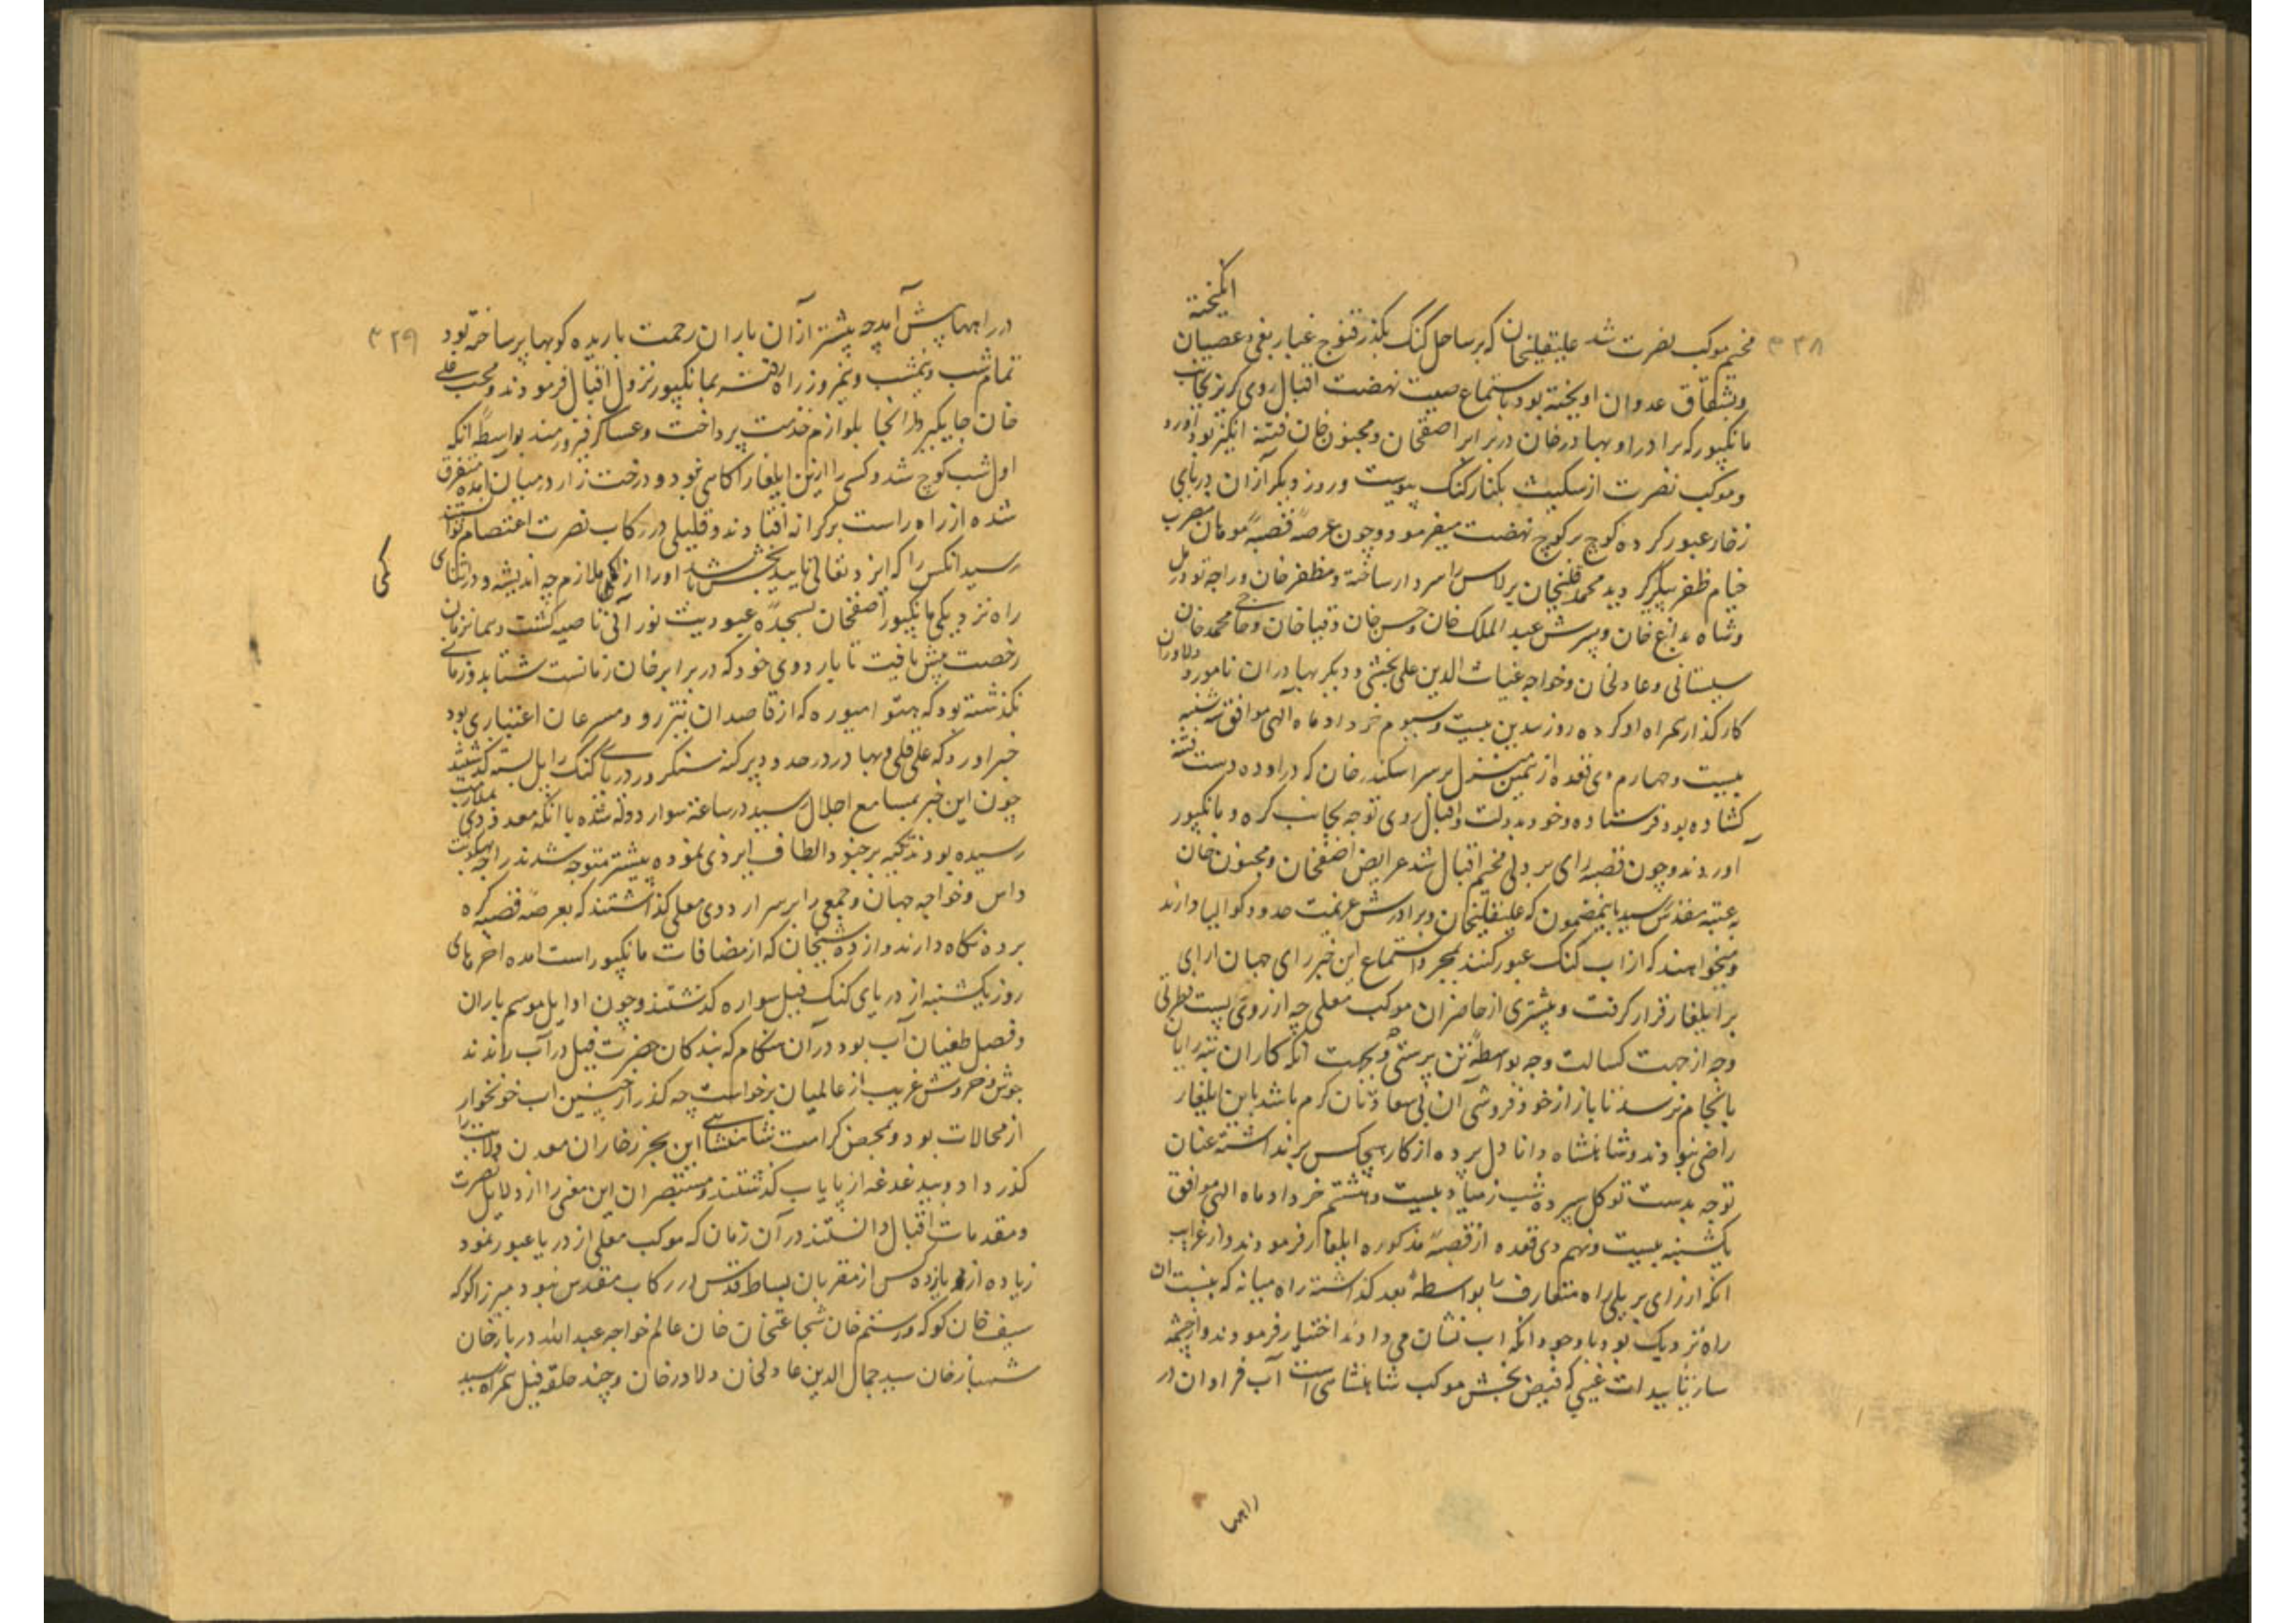 ۳۲۸
انگیخته
مخیم موکب نصرت شد علیقلیخان که بر ساحل گنگ بگذر قنوج غبار بغی و عصیان
و بشقاق عدوان اویخته بود باستماع صیت نهضت اقبال روی گریز بجانب
مانکپور که برادر او بهادرخان در برابر اصفخان و مجنون خان فتنه انگیز بود آورد
و موکب نصرت از سکیت بکنار کنک پیوست و روز دیگر ازان دریای
زخار عبور کرده کوچ بر کوچ نهضت میفرمود و چون عرصهٔ قصبهٔ موهان مضرب
خیام ظفر پیکر گردید محمد قلیخان برلاس را سردار ساخته و مظفرخان و راجه تودرمل
و شاه بداغ خان و پسرش عبد الملک خان و حسن خان و قباخان و حاجی محمد خان
سیستانی و عادلخان و خواجه غیاث الدین علی بخشی و دیگر بهادران نامور و دلاوران
کارگذار همراه او کرده روز سدین بیست و سیوم خرداد ماه الهی موافق سه شنبه
بیست و چهارم ذی قعده از همین منزل بر سر اسکندرخان که در اوده دست فتنه
کشاده بود فرستاده و خود بدولت و اقبال روی توجه بجانب کره و مانکپور
آوردند و چون قصبهٔ رای بریلی مخیم اقبال شد عرایض اصفخان و مجنون خان
به عتبه مقدس رسید باینمضمون که علیقلیخان و برادرش عزیمت حدود کوالیار دارند
و میخواهند که از اب کنک عبور کنند بمجرد استماع این خبر رای جهان ارای
بر ایلغار قرار گرفت و بیشتری از حاضران موکب معلی چه از روی پست فطرتی
و چه از جهت کسالت و چه بواسطهٔ تن پرستی و بجهت انکه کاران تبه رایان
بانجام نرسد تا بازار خود فروشی آن بی سعادتان گرم باشد باین ایلغار
راضی نبودند و شاهنشاه دانا دل پرده از کار هیچکس برنداشته عنان
توجه بدست توکل سپرده شب زمیاد بیست و هشتم خرداد ماه الهی موافق
یکشنبه بیست و نهم ذی قعده از قصبهٔ مذکوره ایلغار فرمودند و از غرایب
انکه از رای بریلی راه متعارف را بواسطهٔ بعد گذاشته راه میانه که بنسبت ان
راه نزدیک بود باوجود انکه اب نشان می دادند اختیار فرمودند و از چشمه
سار تاییدات غیبی که فیض بخش موکب شاهنشاهی است آب فراوان در
راهها
۳۲۹
در راهها پیش آمد چه پیشتر از آن باران رحمت باریده کوبها پر ساخته بود
تمام شب و نیمشب و نیمروز راه رفته بمانکپور نزول اقبال فرمودند و محب علی
خان جایگیردار انجا بلوازم خدمت پرداخت و عساکر فیروزمند بواسطهٔ انکه
اول شب کوچ شد و کسی را ازین ایلغار اگاهی نبود و درخت زار در میان آمده متفرق
شده از راه راست بر کرانه افتادند و قلیلی در رکاب نصرت اعتصام توانست
رسید انکس را که ایزد تعالی تایید بخش باشد او را از کمی ملازم چه اندیشه و در اثنای
کمی
راه نزدیکی مانکپور اصفخان بسجدهٔ عبودیت نورانی ناصیه گشت و همانزمان
رخصت پیش یافت تا باردوی خود که در برابر خان زمانست شتابد و زمانی
نگذشته بود که هیتو امیوره که از قاصدان تیزرو و مسرعان اعتباری بود
خبر اورد که علی قلی و بهادر در حدود پرگنه سنگرور دریای گنگ را پل بسته گذشتند
چون این خبر بمسامع اجلال رسید در ساعت سوار دولت شده با انکه معدودی بملازمت
رسیده بودند تکیه بر جنود الطاف ایزدی نموده پیشتر متوجه شدند راجه بهگونت
داس و خواجه جهان و جمعی را بر سر اردوی معلی گذاشتند که بعرصهٔ قصبهٔ کره
برده نگاه دارند و از ده شیخان که از مضافات مانکپور است امده اخرهای
روز یکشنبه از دریای کنک فیل سواره گذشتند و چون اوایل موسم باران
و فصل طغیان آب بود در آن هنگام که بندگان حضرت فیل در آب راندند
جوش و خروش غریب از عالمیان برخواست چه گذر از چنین اب خونخوار
از محالات بود و بمحض کرامت شاهنشاهی این بحر زخار ان معدن ولایت را
گذر داد و بیدغدغه از پایاب گذشتند و مستبصران این معنی را از دلایل نصرت
و مقدمات اقبال دانستند در آن زمان که موکب معلی از دریا عبور نمود
زیاده از یازده کس از مقربان بساط قدس در رکاب مقدس نبود میرزا کوکه
سیف خان کوکه و رستم خان شجاعتخان خان عالم خواجه عبد الله دربارخان
شهبازخان سید جمال الدین عادلخان دلاورخان و چند حلقه فیل همراه رسید